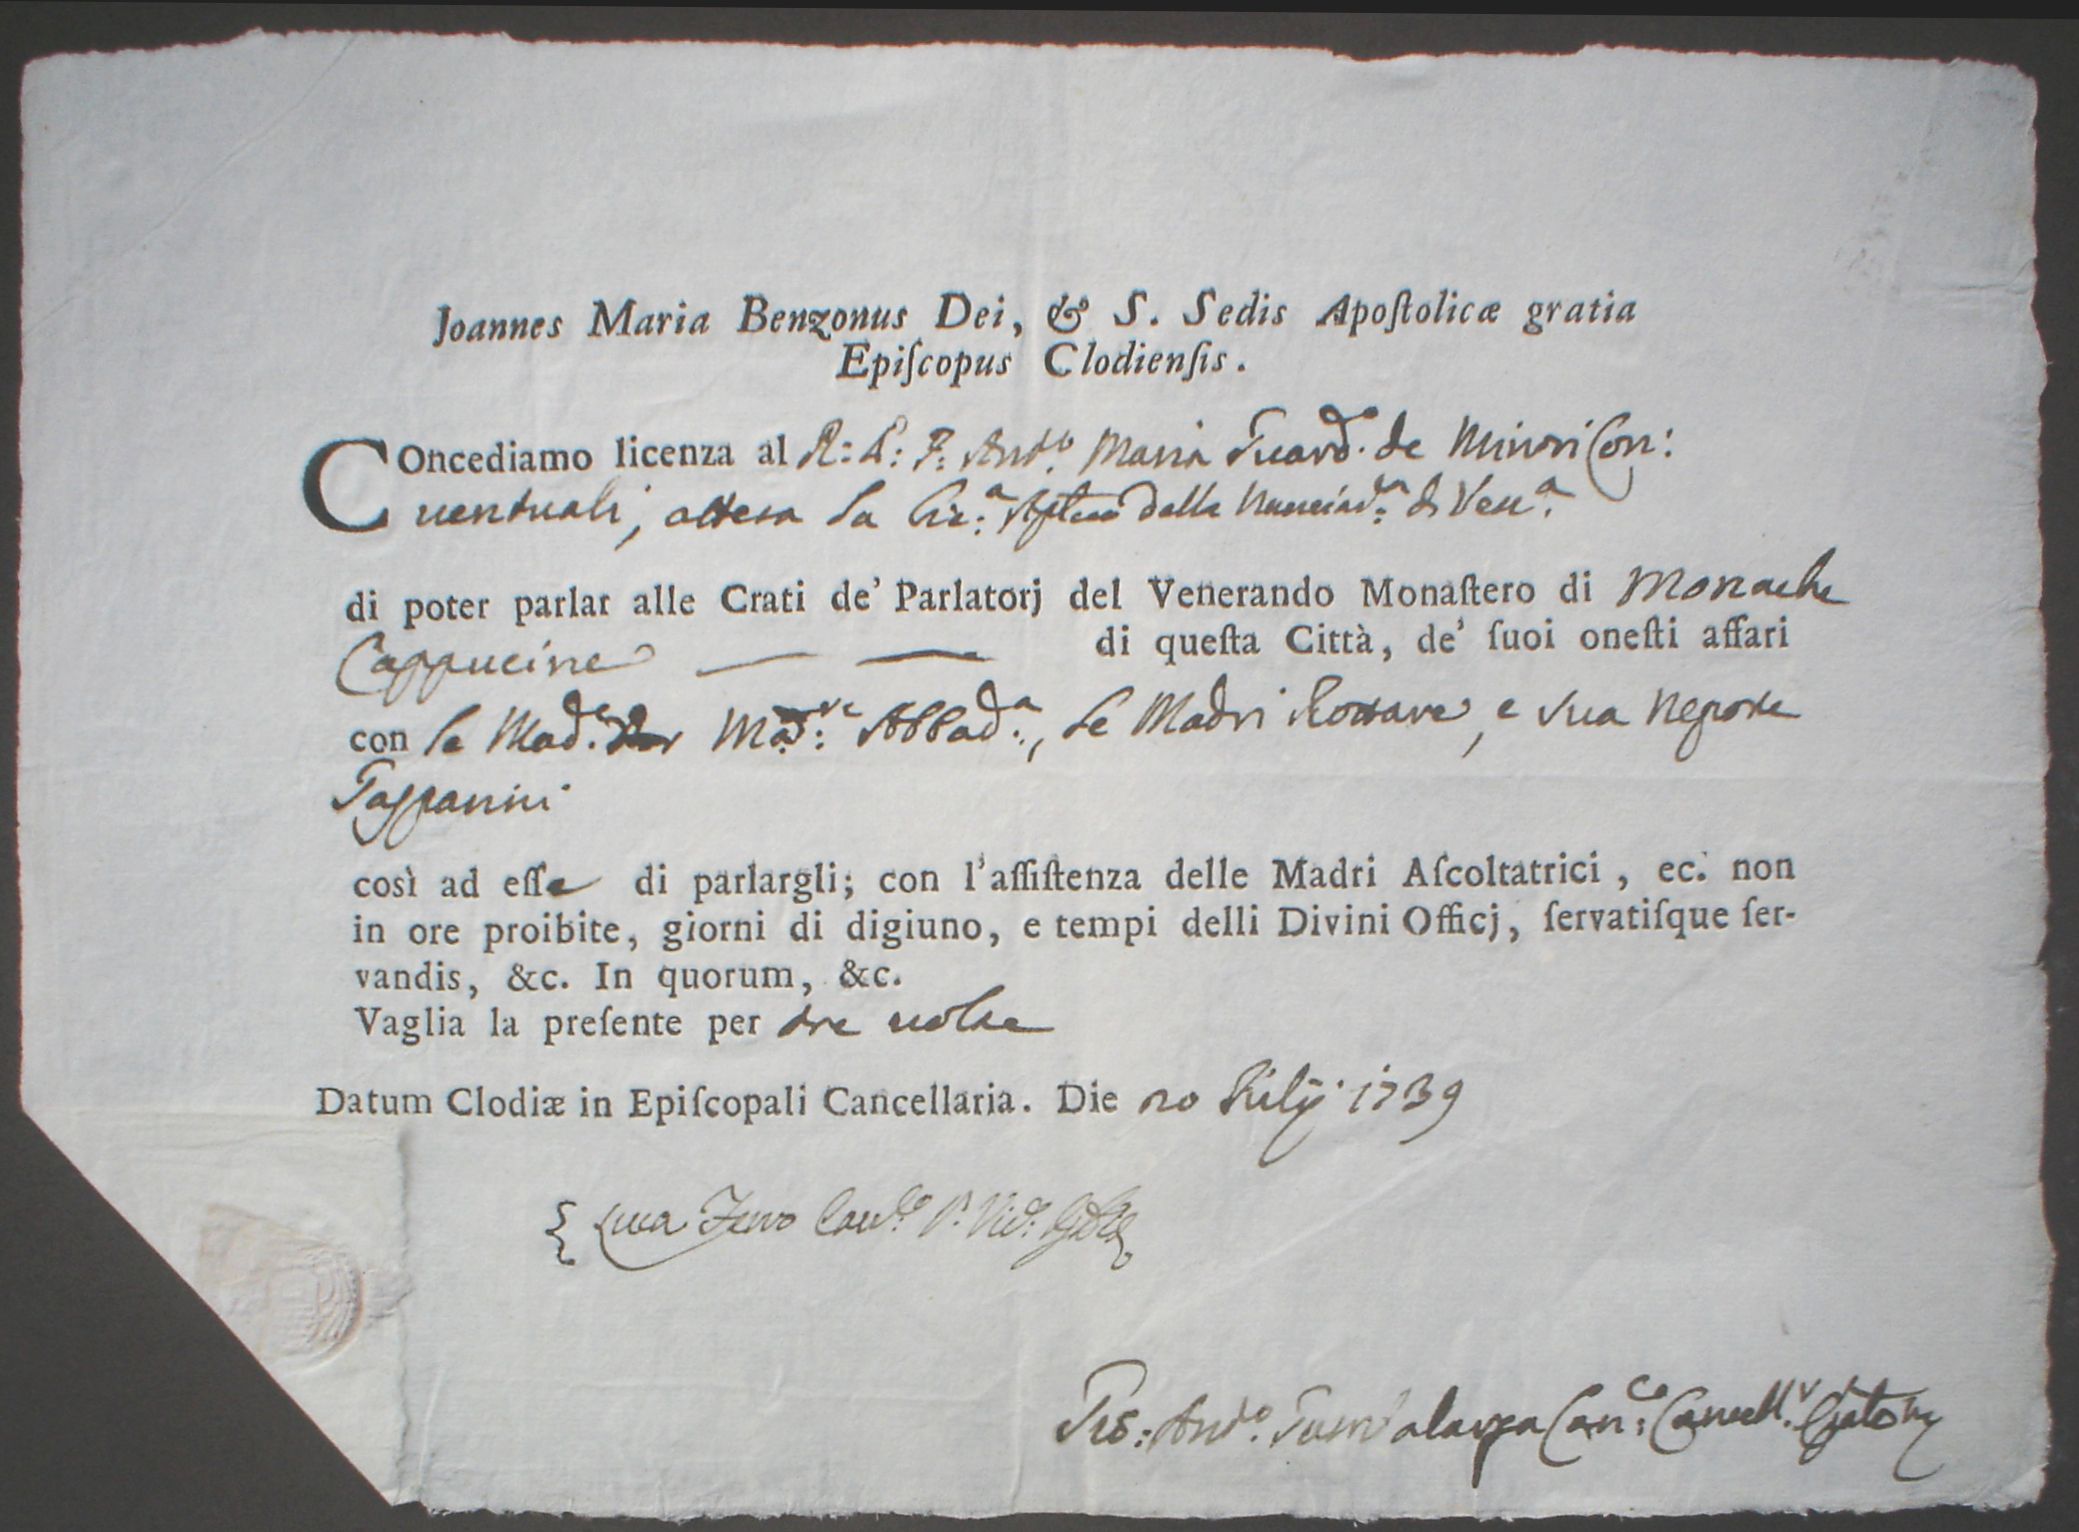 Joannes Maria Benzonus Dei, & S. Sedis Apoſtolicæ gratia
Epiſcopus Clodienſis.
COncediamo licenza al R: P: F: Ant.º Maria Guard. de Minori Con:
uentuali, attesa la lic:ª della Nunciat:ª di Ven.ª
di poter parlar alle Crati de' Parlatorj del Venerando Monaſtero di Monache
Cappucine di queſta Città, de' ſuoi oneſti affari
con la Mad.e Abbad.ª, le Madri e sua Nepote
così ad eſſe di parlargli; con l'aſſiſtenza delle Madri Aſcoltatrici, ec. non
in ore proibite, giorni di digiuno, e tempi delli Divini Officj, ſervatiſque ſer-
vandis, &c. In quorum, &c.
Vaglia la preſente per tre uolte
Datum Clodiæ in Epiſcopali Cancellaria. Die 1739
Ant.º Can:co Cancell.r